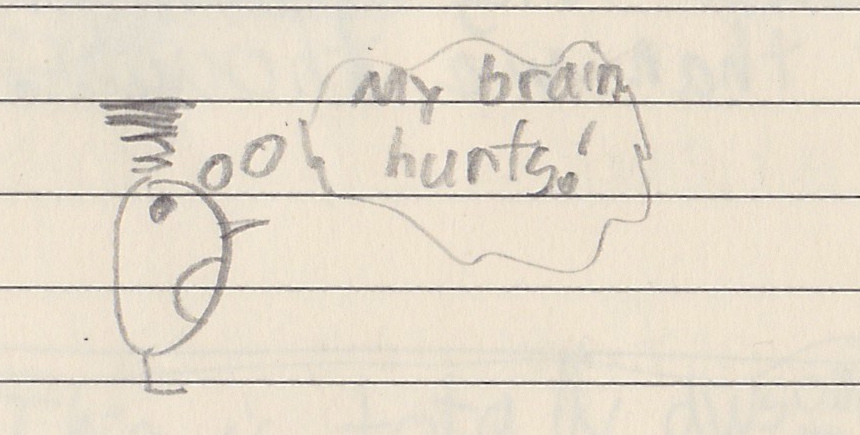 My brain
hurts!